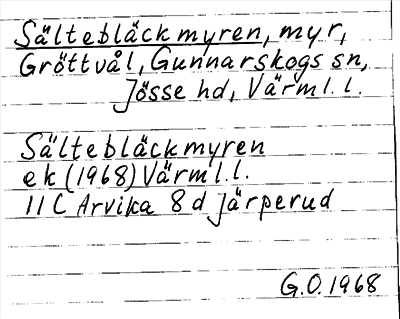 Sältebläckmyren, myr,
Gröttvål, Gunnarskogs sn,
Jösse hd, Värml. l.
Sältebläckmyren
ek (1968) Värml. l.
11 C Arvika 8 d Järperud
G.O. 1968